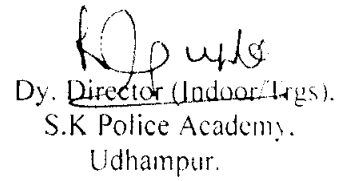 Dy. Director (Indoor/Trgs).
S.K Police Academy.
Udhampur.